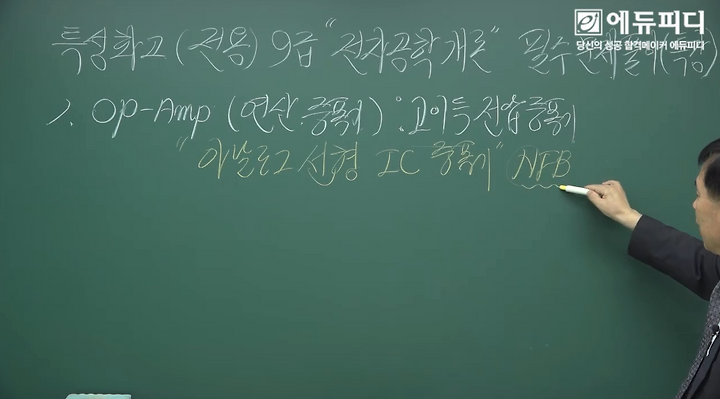 에듀피디
당신의 성공 합격메이커 에듀피디
특성화고 (전용) 9급 "전자공학개론" 필수문제풀이(특강)
1. OP-Amp (연산증폭기) : 고이득전압증폭기
"아날로그 선형 IC 증폭기" NFB